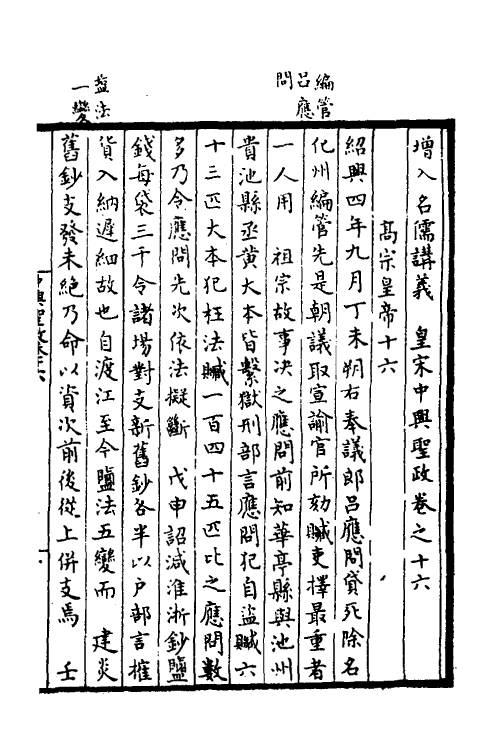 編管
呂應
問
鹽法
一變
增入名儒講義　皇宋中興聖政卷之十六
高宗皇帝十六
紹興四年九月丁未朔右奉議郎呂應問貸死除名
化州編管先是朝議取宣諭官所劾贓吏擇最重者
一人用　祖宗故事決之應問前知華亭縣與池州
貴池縣丞黃大本皆繫獄刑部言應問犯自盜贓六
十三匹大本犯枉法贓一百四十五匹比之應問數
多乃令應問先次依法擬斷　戊申詔減淮浙鈔鹽
錢每袋三千令諸場對支新舊鈔各半以戶部言榷
貨入納遲細故也自渡江至今鹽法五變而　建炎
舊鈔支發未絕乃命以資次前後從上併支焉　壬
中興聖政卷十六